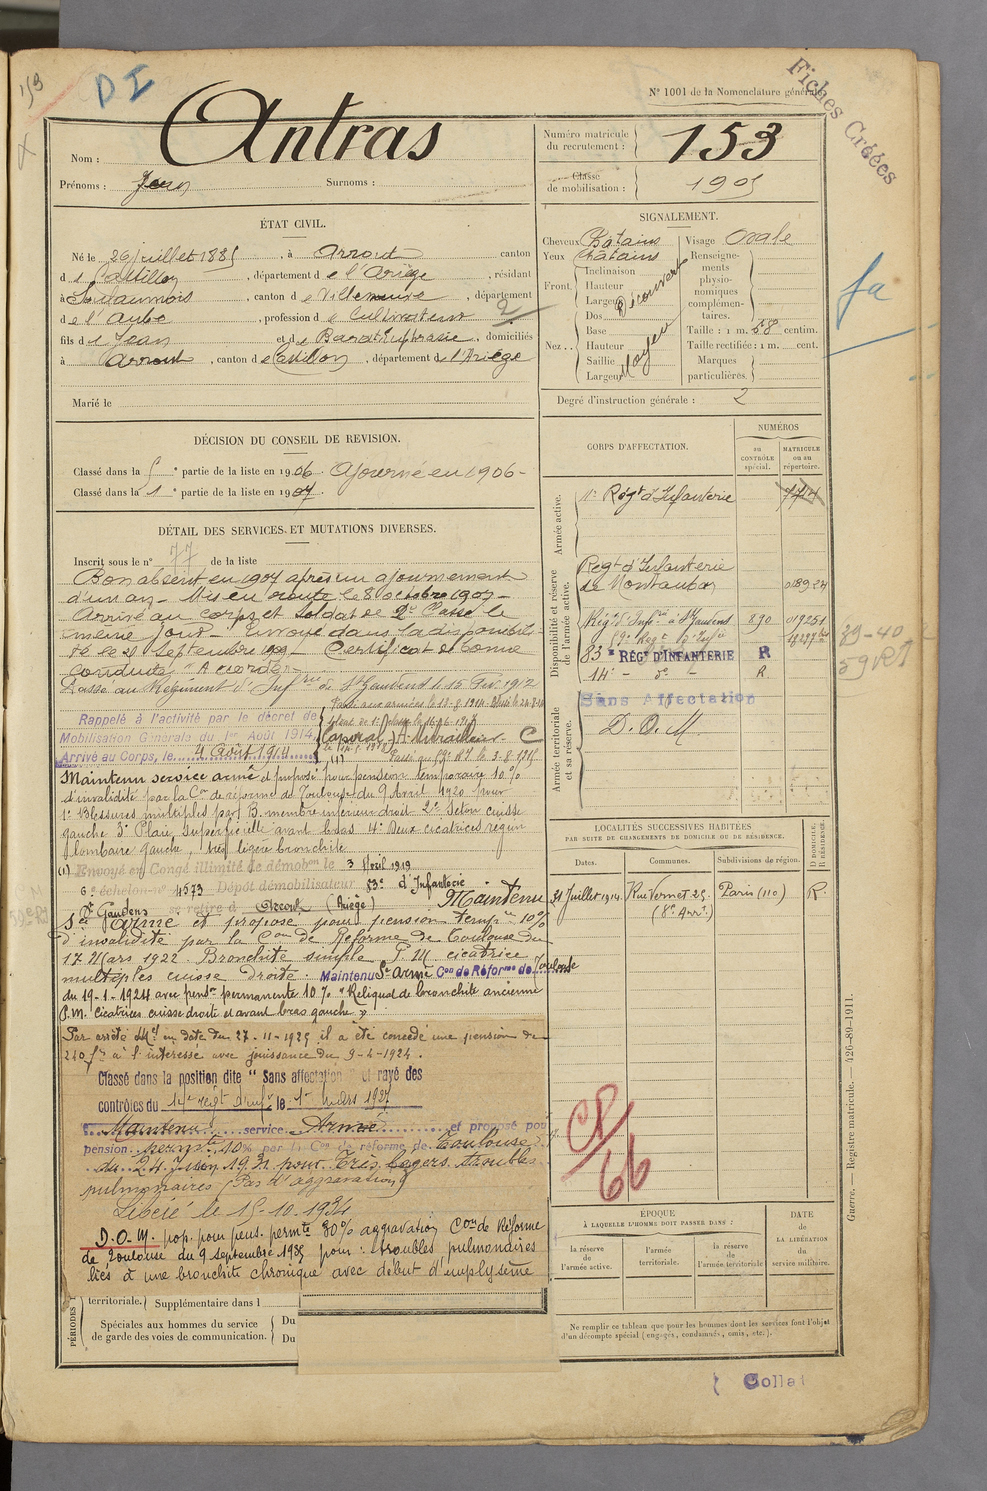 153
D I
N° 1001 de la Nomenclature générale.
Fiches Créées
Nom : Antras
Prénoms : Jean Surnoms :
Numéro matricule du recrutement : 153
Classe de mobilisation : 1905
ÉTAT CIVIL.
Né le 26 juillet 1885, à Arrout canton
d e Castillon, département d e l'Ariège, résidant
à Soulaumois, canton d e Villemaure, département
d e l'Aube, profession d e Cultivateur
fils d e Jean et d e Barat Euphrasie, domiciliés
à Arrout, canton d e Castillon, département d e l'Ariège
Marié le
SIGNALEMENT.
Cheveux Châtains
Yeux Châtains
Front. Inclinaison
Hauteur
Largeur
Découvert
Nez.. Dos
Base
Hauteur
Saillie
Largeur
Moyen
Visage Ovale
Renseignements physionomiques complémentaires.
Taille : 1 m. 58 centim.
Taille rectifiée : 1 m. cent.
Marques particulières.
Degré d'instruction générale : 2
fa
DÉCISION DU CONSEIL DE REVISION.
Classé dans la 5e partie de la liste en 1906. Ajourné en 1906-
Classé dans la 1e partie de la liste en 1907.
DÉTAIL DES SERVICES ET MUTATIONS DIVERSES.
Inscrit sous le n° 77 de la liste
Bon absent en 1907 après un ajournement
d'un an - Mis en route le 8 octobre 1907 -
Arrivé au corps et soldat de 2e Classe le
même jour - Envoyé dans la disponibili-
té le 28 Septembre 1909 - Certificat de bonne
conduite " Accordé -
Passé au Régiment d'Inf rie de St Gaudens le 15 Fev. 1912
Passé aux armées le 13-8-1914
Rappelé à l'activité par le décret de
Mobilisation Générale du 1er Août 1914.
Arrivé au Corps, le 4 Août 1914
Caporal
Maintenu service armé et proposé pour pension temporaire 10%
d'invalidité par la Con de réforme de Toulouse du 9 Avril 1920 pour
1° Blessures multiples par B. membre inférieur droit 2° Seton cuisse
gauche 3° Plaie superficielle avant bras 4° Deux cicatrices région
lombaire gauche, très légère bronchite
(1) Envoyé en Congé illimité de démob on le 3 Avril 1919
6e échelon n° 4573 Dépôt démobilisateur 83e d'Infanterie
St Gaudens se retire à Arrout (Ariège) Maintenu
Sce Armé et proposé pour pension temp re 10%
d'invalidité par la Con de Réforme de Toulouse du
17 Mars 1922. Bronchite simple P.M cicatrice
multiples cuisse droite. Maintenu Sce Armé Con de Réforme de Toulouse
du 19-1-1924 avec pens on permanente 10% " Reliquat de bronchite ancienne
P.M. cicatrices cuisse droite et avant bras gauche "
Par arrêté M el en date du 27-11-1925 il a été concédé une pension de
240 frs à l'intéressé avec jouissance du 9-4-1924.
Classé dans la position dite "Sans affectation" et rayé des
contrôles du 14e régt d'inf ie le 1er Mars 1927
Maintenu service Armé et proposé pour
pension perm te 10% par la Con de réforme de Toulouse
du 24 Juin 1931 pour Très légers troubles
pulmonaires (Pas d'aggravation)
Libéré le 15-10-1934
D.O.M. prop. pour pens. perm te 30% aggravation Con de Réforme
de Toulouse du 9 septembre 1935 pour : troubles pulmonaires
liés à une bronchite chronique avec début d'emphysème
territoriale. Supplémentaire dans l
PÉRIODES
Spéciales aux hommes du service de garde des voies de communication. Du
Du
CORPS D'AFFECTATION.
NUMÉROS
au CONTRÔLE spécial.
MATRICULE ou au répertoire.
Armée active.
1er Régt d'Infanterie
Disponibilité et réserve de l'armée active.
Regt d'Infanterie
de Montauban 018924
Régt d'Inf rie à St Gaudens 890 019251
59e Regt d'Infie
83e RÉGT D'INFANTERIE R
14e - de - R.
39-40
59 RI
Armée territoriale et sa réserve.
Sans Affectation
D.O.M.
LOCALITÉS SUCCESSIVES HABITÉES
PAR SUITE DE CHANGEMENTS DE DOMICILE OU DE RÉSIDENCE.
Dates. Communes. Subdivisions de région. D DOMICILE, R RÉSIDENCE.
31 Juillet 1914. Rue Vernet 25. Paris (11e) R.
(8e Arrt)
CP
66
ÉPOQUE
À LAQUELLE L'HOMME DOIT PASSER DANS :
la réserve de l'armée active.
l'armée territoriale.
la réserve de l'armée territoriale
DATE de LA LIBÉRATION du service militaire.
Ne remplir ce tableau que pour les hommes dont les services font l'objet
d'un décompte spécial (engagés, condamnés, omis, etc.).
Guerre. — Registre matricule. — 426-89-1911.
Collat